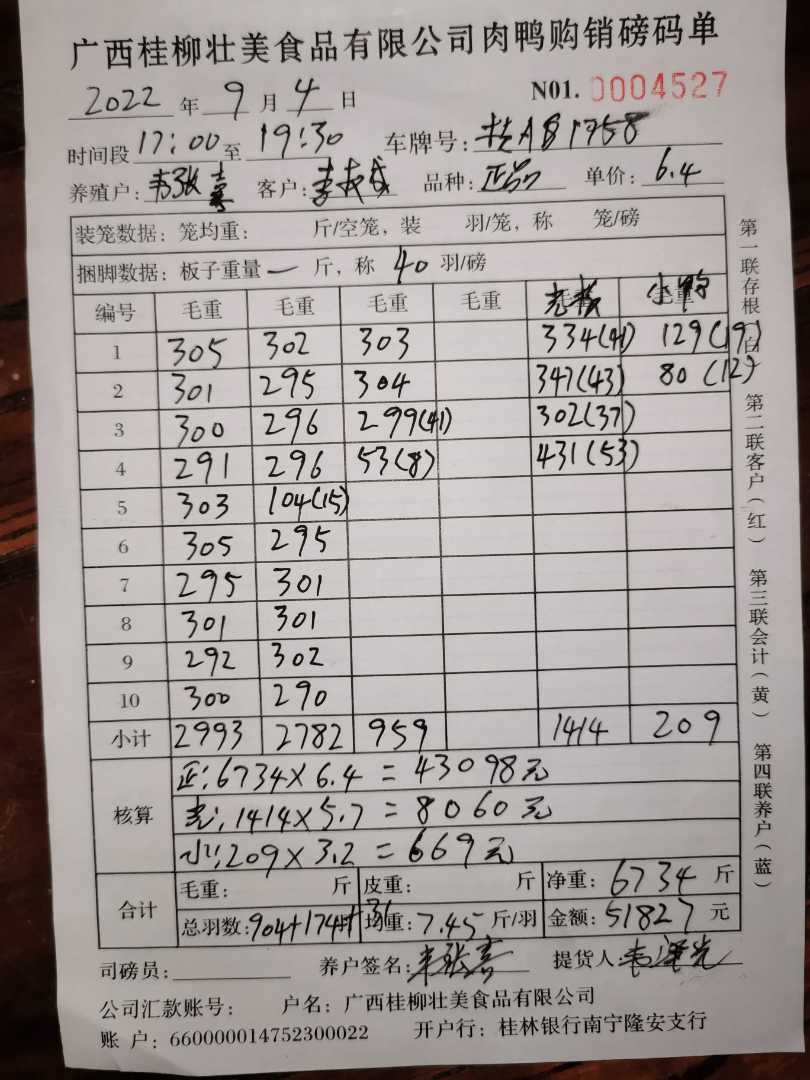 广西桂柳壮美食品有限公司肉鸭购销磅码单
2022 年 9 月 4 日 N01. 0004527
时间段 17:00 至 19:30 车牌号: 桂AB1758
养殖户: 韦张嘉 客户: 品种: 正品 单价: 6.4
装笼数据: 笼均重: 斤/空笼, 装 羽/笼, 称 笼/磅
捆脚数据: 板子重量 一 斤, 称 40 羽/磅
编号 毛重 毛重 毛重 毛重 毛重 毛重
1 305 302 303 334(41) 129(19)
2 301 295 304 347(43) 80(12)
3 300 296 299(41) 302(37)
4 291 296 53(8) 431(53)
5 303 104(15)
6 305 295
7 295 301
8 301 301
9 292 302
10 300 290
小计 2993 2782 959 1414 209
核算 正:6734×6.4=43098元
老:1414×5.7=8060元
小:209×3.2=669元
合计 毛重: 斤 皮重: 斤 净重: 6734 斤
总羽数: 904+174+31 均重: 7.45 斤/羽 金额: 51827 元
司磅员: 养户签名: 韦张嘉 提货人:
公司汇款账号: 户名: 广西桂柳壮美食品有限公司
账 户: 660000014752300022 开户行: 桂林银行南宁隆安支行
第一联存根(白) 第二联客户(红) 第三联会计(黄) 第四联养户(蓝)